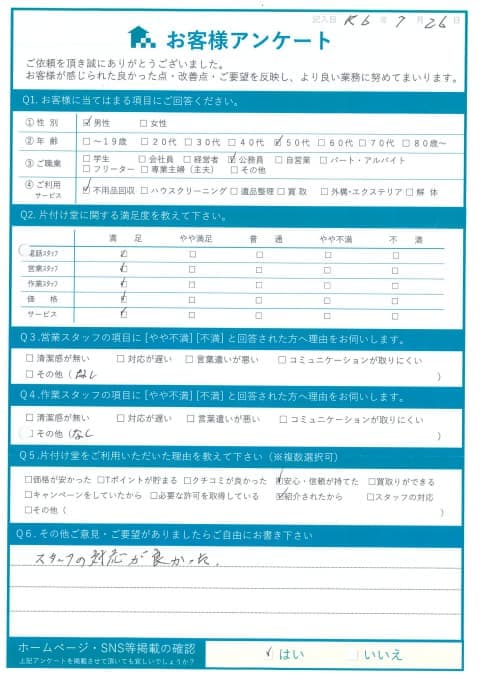 記入日 R6 年 7 月 26 日
お客様アンケート
ご依頼を頂き誠にありがとうございました。
お客様が感じられた良かった点・改善点・ご要望を反映し、より良い業務に努めてまいります。
Q1. お客様に当てはまる項目にご回答ください。
① 性 別 ☑男性 □女性
② 年 齢 □〜19歳 □20代 □30代 □40代 ☑50代 □60代 □70代 □80歳〜
③ ご職業 □学生 □会社員 □経営者 ☑公務員 □自営業 □パート・アルバイト
□フリーター □専業主婦（主夫） □その他
④ ご利用サービス ☑不用品回収 □ハウスクリーニング □遺品整理 □買取 □外構・エクステリア □解体
Q2. 片付け堂に関する満足度を教えて下さい。
満足 やや満足 普通 やや不満 不満
電話スタッフ ☑ □ □ □ □
営業スタッフ ☑ □ □ □ □
作業スタッフ ☑ □ □ □ □
価格 ☑ □ □ □ □
サービス ☑ □ □ □ □
Q3.営業スタッフの項目に[やや不満][不満]と回答された方へ理由をお伺いします。
□清潔感が無い □対応が遅い □言葉遣いが悪い □コミュニケーションが取りにくい
□その他（なし ）
Q4.作業スタッフの項目に[やや不満][不満]と回答された方へ理由をお伺いします。
□清潔感が無い □対応が遅い □言葉遣いが悪い □コミュニケーションが取りにくい
□その他（なし ）
Q5.片付け堂をご利用いただいた理由を教えて下さい（※複数選択可）
□価格が安かった □Tポイントが貯まる □クチコミが良かった ☑安心・信頼が持てた □買取りができる
□キャンペーンをしていたから □必要な許可を取得している ☑紹介されたから □スタッフの対応
□その他（ ）
Q6.その他ご意見・ご要望がありましたらご自由にお書き下さい
スタッフの対応が良かった。
ホームページ・SNS等掲載の確認 ☑はい □いいえ
上記アンケートを掲載させて頂いても宜しいでしょうか？